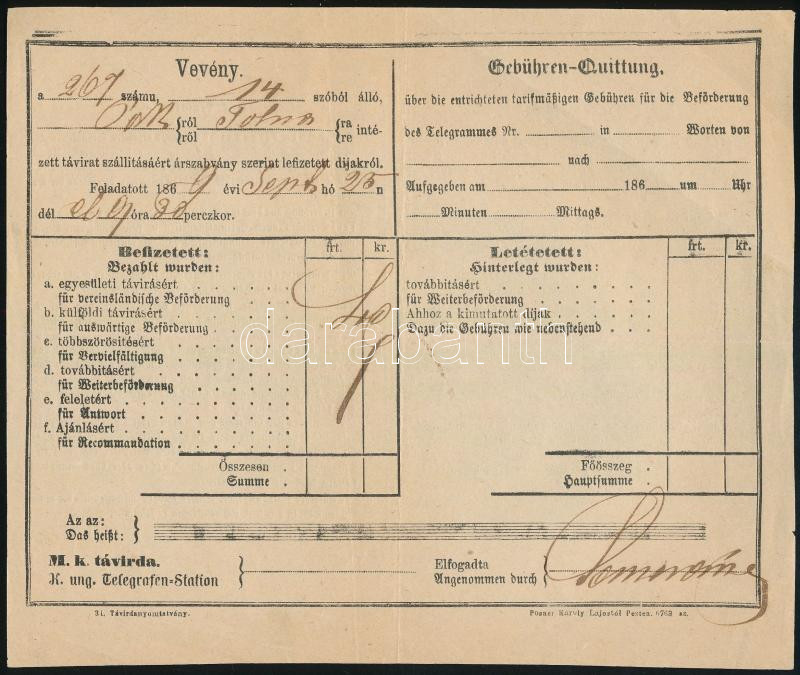 Vevény.
a 267 számu, 14 szóból álló,
{ról ről Tolna {ra re inté-
zett távirat szállitásáért árszabvány szerint lefizetett dijakról.
Feladatott 1869 évi Sept hó 25 n
dél el 9 óra 30 perczkor.
Gebühren-Quittung,
über die entrichteten tarifmäßigen Gebühren für die Beförderung
des Telegrammes Nr. in Worten von
nach
Aufgegeben am 186 um Uhr
Minuten Mittags.
Befizetett: frt. kr.
Bezahlt wurden:
a. egyesületi távirásért
für vereinsländische Beförderung
b. külföldi távirásért
für auswärtige Beförderung
c. többszörösitésért
für Vervielfältigung
d. továbbitásért
für Weiterbeförderung
e. feleletért
für Antwort
f. Ajánlásért
für Recommandation
Összesen
Summe
Letétetett: frt. kr.
Hinterlegt wurden:
továbbitásért
für Weiterbeförderung
Ahhoz a kimutatott dijak
Dazu die Gebühren wie nebenstehend
Főösszeg
Hauptsumme
Az az:
Das heißt:
M. k. távirda.
K. ung. Telegrafen-Station
Elfogadta
Angenommen durch
31. Távirdanyomtatvány.
Posner Károly Lajostól Pesten. 6763 sz.
darabanth